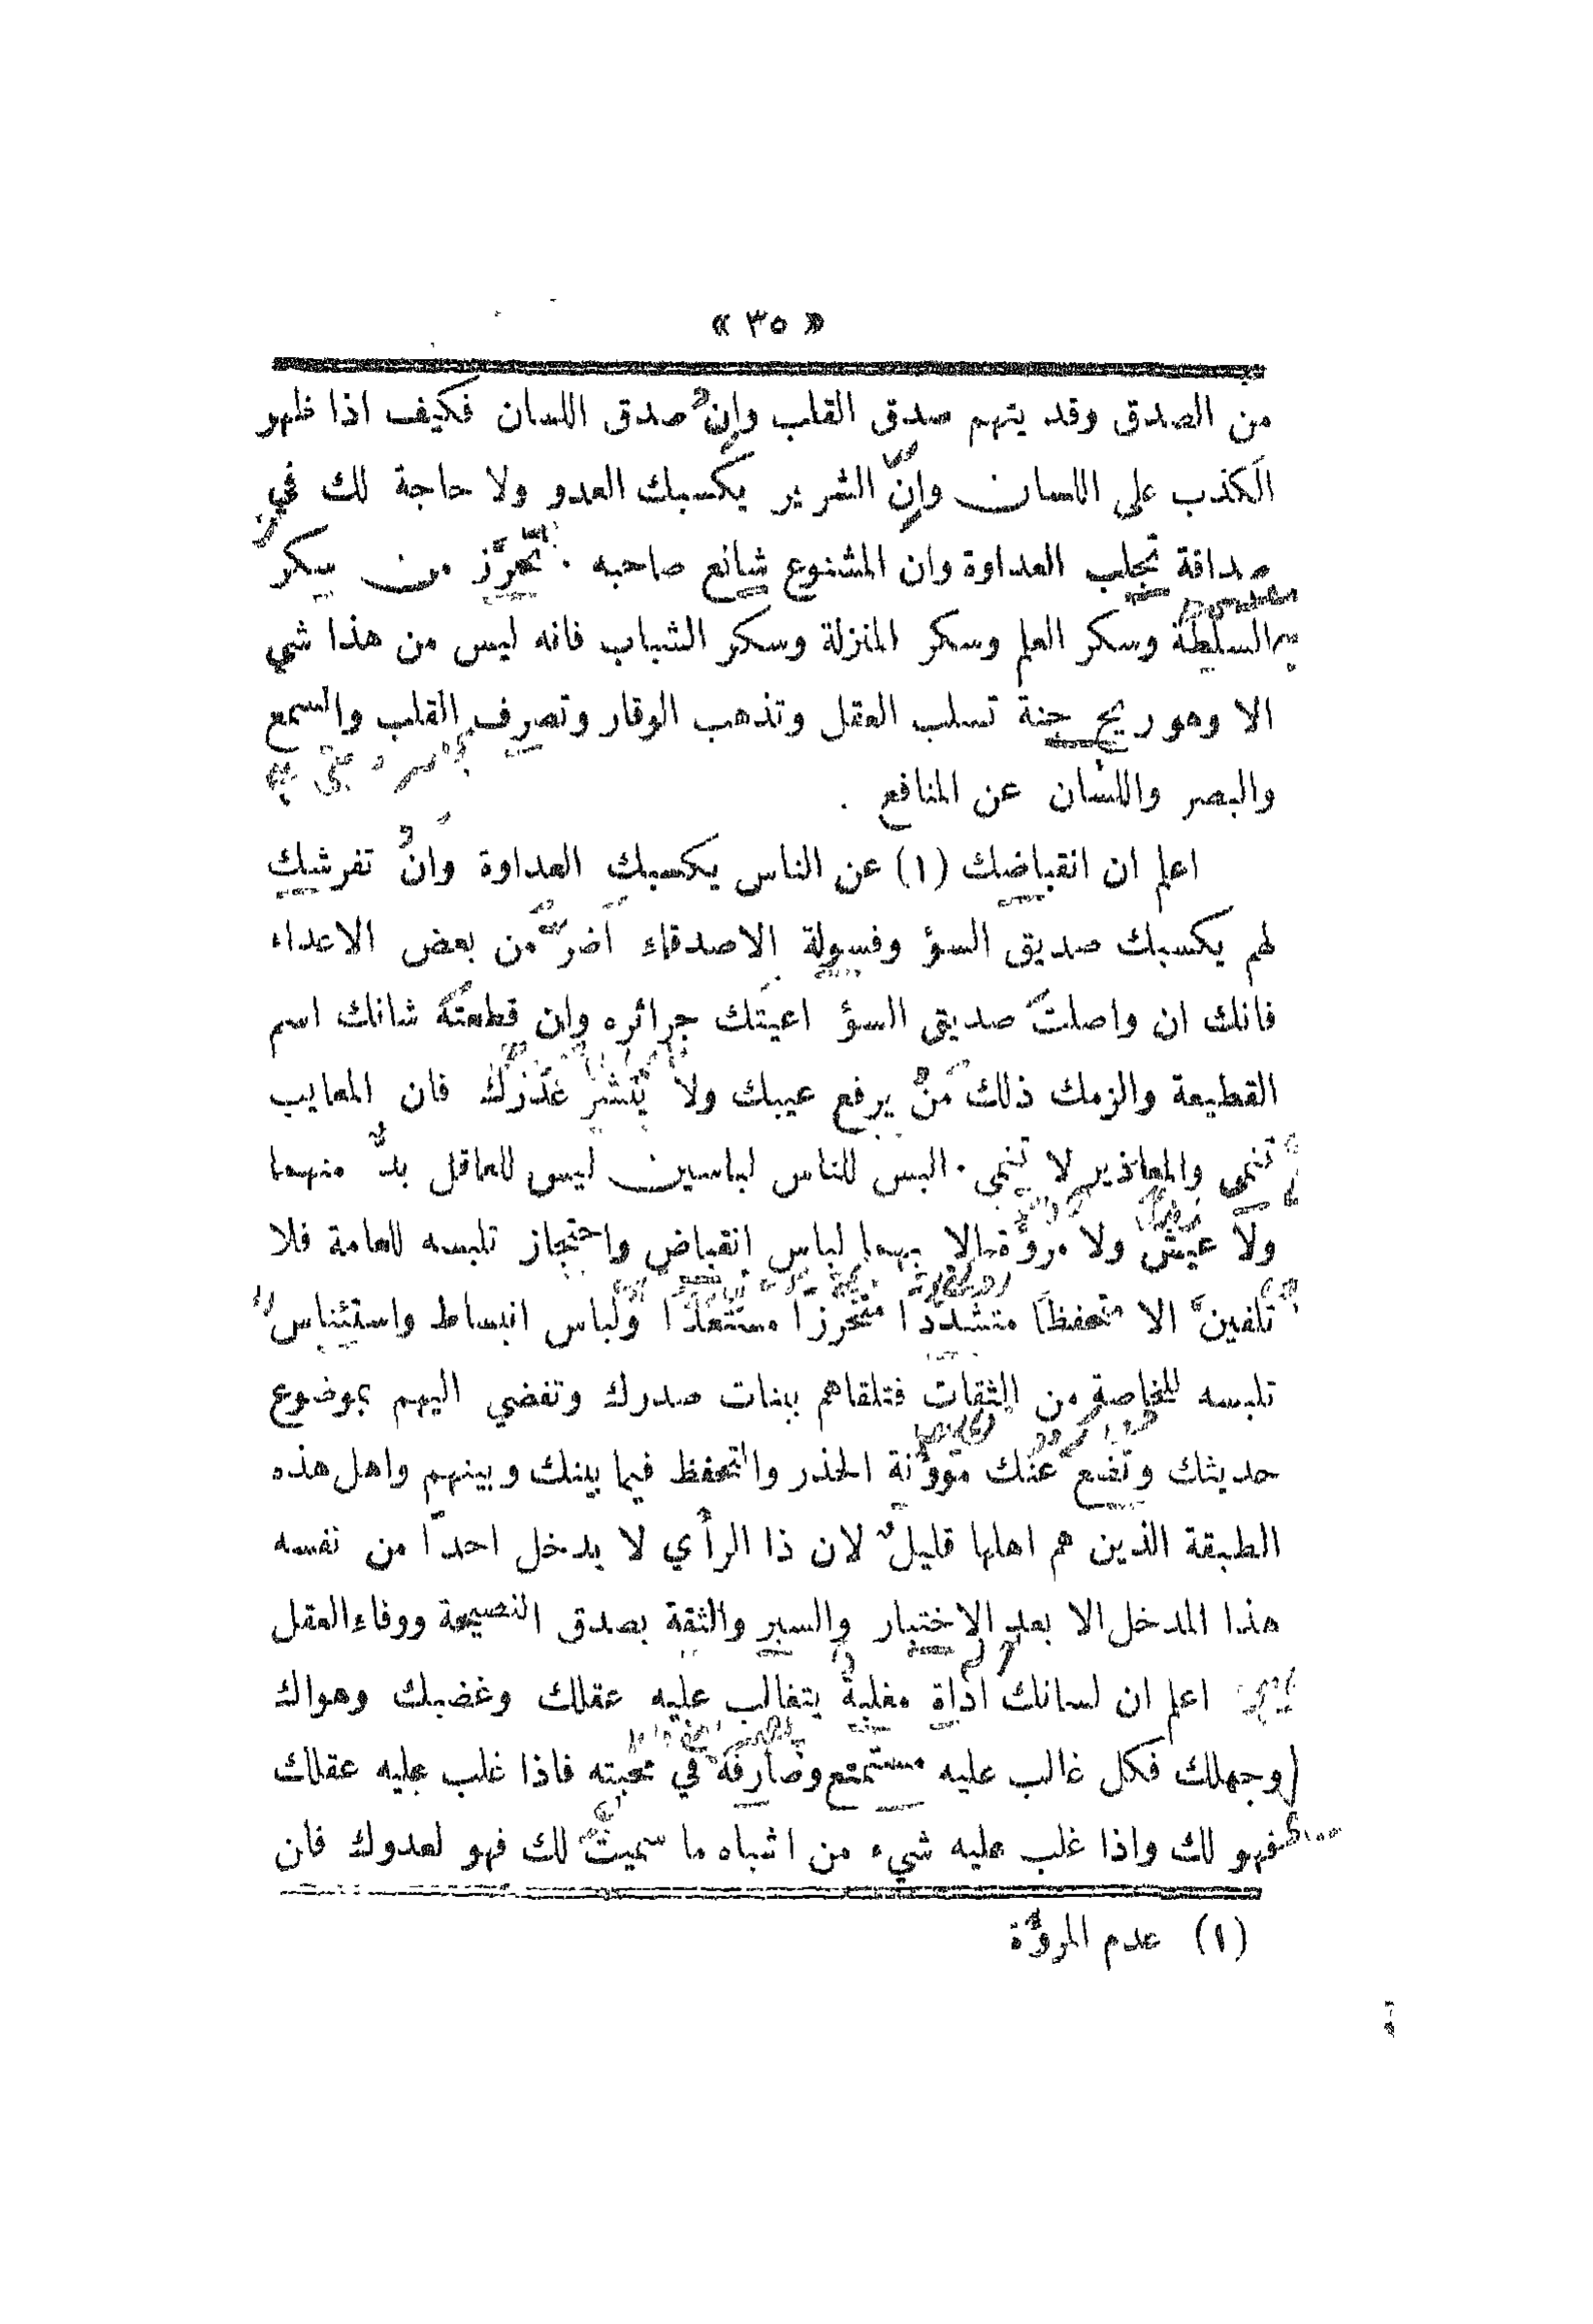 « ٣٥ »
من الصدق وقد يتهم صدق القلب وإن صدق اللسان فكيف اذا ظهر
الكذب على اللسان وإنّ الشرير يكسبك العدو ولا حاجة لك في
صداقة تجلب العداوة وان المشنوع شانع صاحبه . تحرَّز من سكر
السلطة وسكر العلم وسكر المنزلة وسكر الشباب فانه ليس من هذا شي
الا وهو ريح جنة تسلب العقل وتذهب الوقار وتصرف القلب والسمع
والبصر واللسان عن المنافع .
اعلم ان انقباضك (١) عن الناس يكسبك العداوة وان تفرشك
لهم يكسبك صديق السؤ وفسولة الاصدقاء اضر من بعض الاعداء
فانك ان واصلت صديق السؤ اعيتك جرائره وان قطعته شانك اسم
القطيعة والزمك ذلك من يرفع عيبك ولا ينشر عذرك فان المعايب
تنمى والمعاذير لا تنمى . البس للناس لباسين ليس للعاقل بدٌّ منهما
ولا عيش ولا مروَّة الا بهما لباس انقباض واحتجاز تلبسه للعامة فلا
تلفينَّ الا متحفظًا متشددًا متحرزًا مستعدًّا ولباس انبساط واستئناس
تلبسه للخاصة من الثقات فتلقاهم ببنات صدرك وتفضي اليهم بموضوع
حديثك وتضع عنك مؤونة الحذر والتحفظ فيما بينك وبينهم واهل هذه
الطبقة الذين هم اهلها قليل لان ذا الرأي لا يدخل احدًا من نفسه
هذا المدخل الا بعد الاختبار والسبر والثقة بصدق النصيحة ووفاء العقل
اعلم ان لسانك اداة مغلبة يتغالب عليه عقلك وغضبك وهواك
وجهلك فكل غالب عليه مستمتع وصارفه في محبته فاذا غلب عليه عقلك
فهو لك واذا غلب عليه شيء من اشباه ما سميت لك فهو لعدوك فان
(١) عدم المروَّة